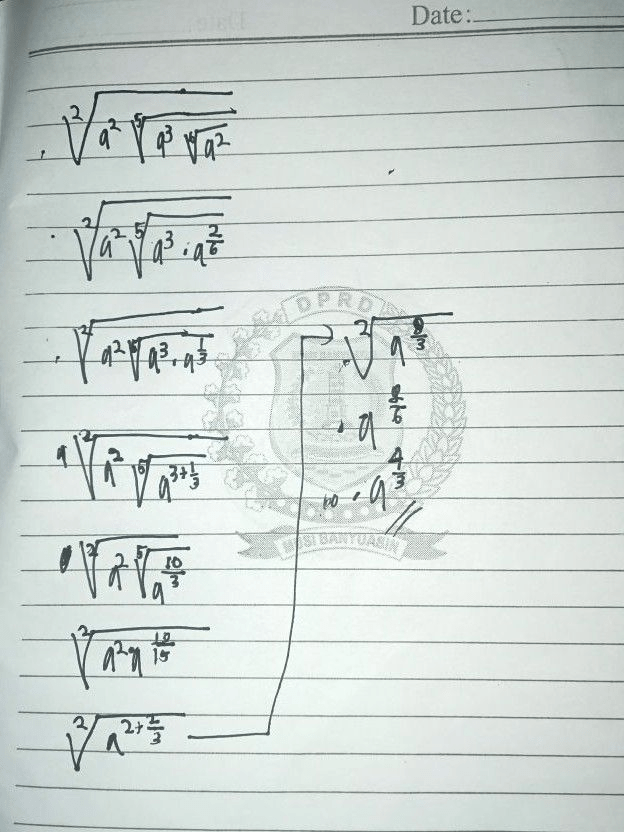 Date:
²√(a² ⁵√(a³ ⁶√(a²)))
²√(a² ⁵√(a³ · a^(2/6)))
²√(a² ⁵√(a³ · a^(1/3)))
²√(a² ⁵√(a^(3+1/3)))
²√(a² ⁵√(a^(10/3)))
²√(a² · a^(10/15))
²√(a^(2+2/3))
²√(a^(8/3))
a^(8/6)
a^(4/3)
DPRD
MUSI BANYUASIN